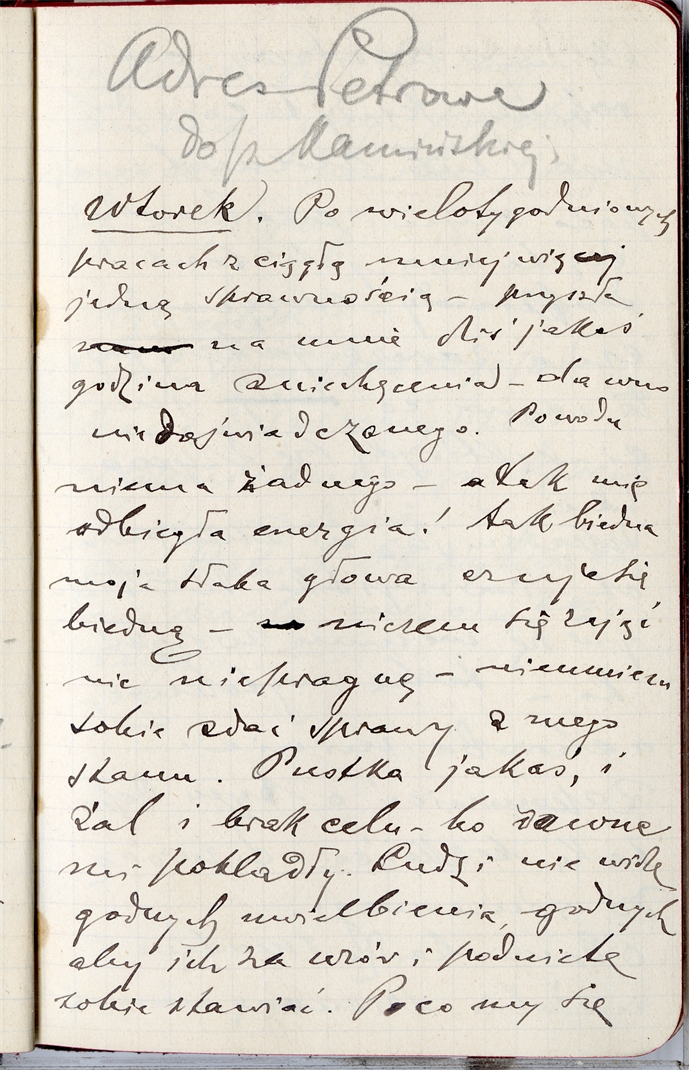 Adres Petrowe
do p. Kamińskiej
Wtorek. Po wielotygodniowych
pracach z ciągłą mniej więcej
jedną sprawnością – przyszła
na mnie dziś jakaś
godzina zniechęcenia – dawno
niedoświadczanego. Powodu
niema żadnego – a tak mię
odbiegła energia! tak biedna
moja słaba głowa czuje się
biedną – niczem się zająć
nie pragnę – nieumiem
sobie zdać sprawy z mego
stanu. Pustka jakaś, i
żal i brak celu – bo dawne
mi pobladły. Ludzi nie widzę
godnych uwielbienia, godnych
aby ich za wzór i podnietę
sobie stawiać. Poco my się